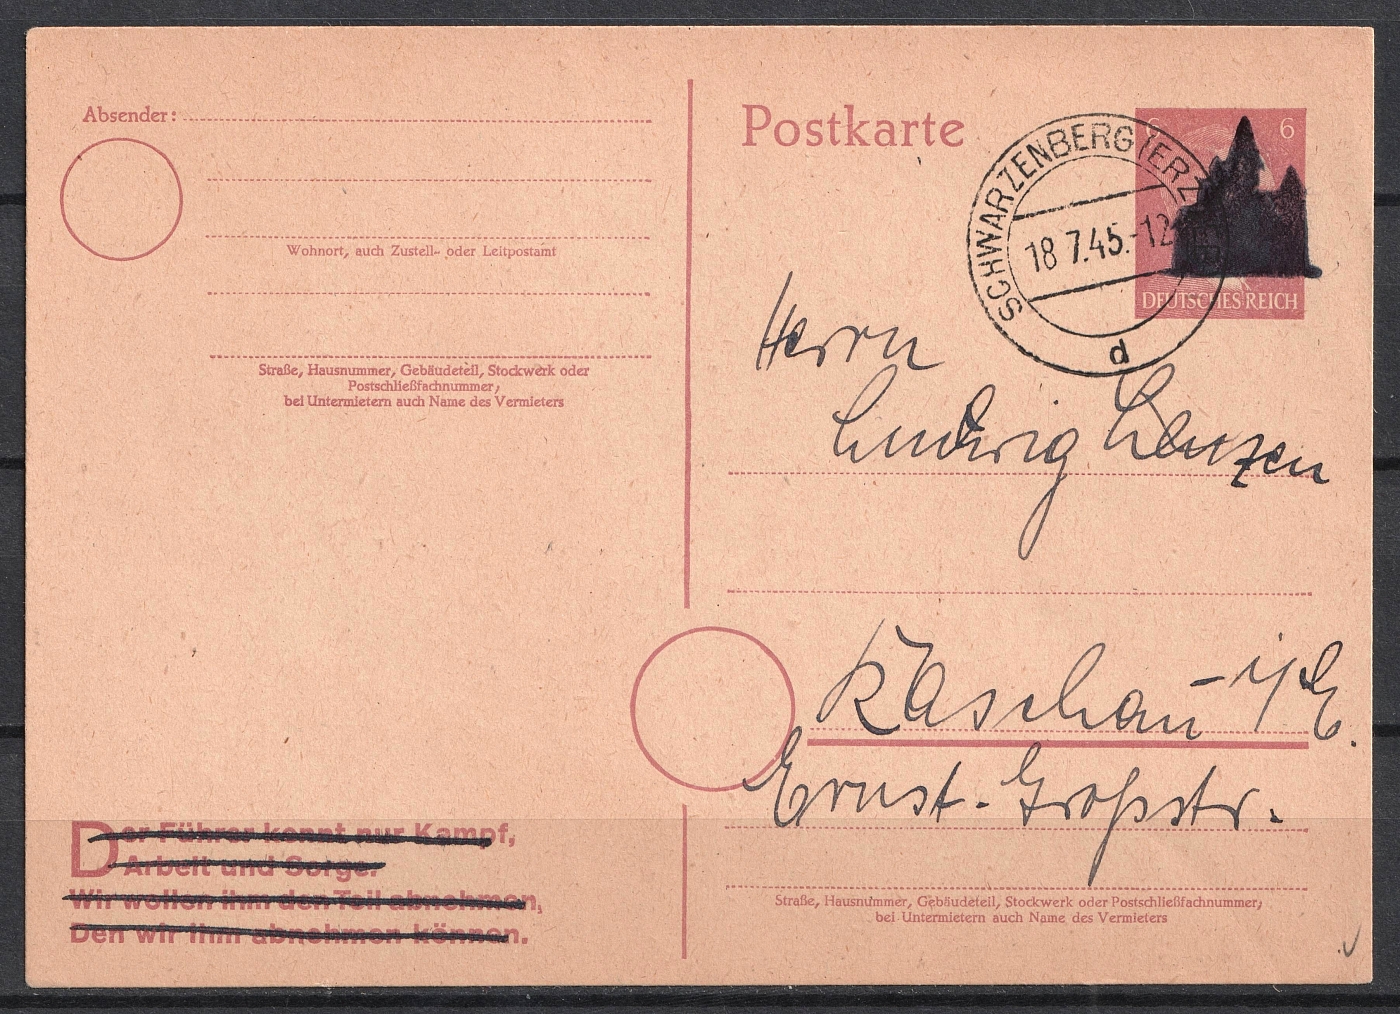 Absender:
Wohnort, auch Zustell- oder Leitpostamt
Straße, Hausnummer, Gebäudeteil, Stockwerk oder
Postschließfachnummer;
bei Untermietern auch Name des Vermieters
Der Führer kennt nur Kampf,
Arbeit und Sorge.
Wir wollen ihm den Teil abnehmen,
Den wir ihm abnehmen können.
Postkarte
6
DEUTSCHES REICH
SCHWARZENBERG (ERZ
18 7.45.-12
d
Herrn
Ludwig Lenzen
Raschau - i/E.
Ernst-Großstr.
Straße, Hausnummer, Gebäudeteil, Stockwerk oder Postschließfachnummer;
bei Untermietern auch Name des Vermieters